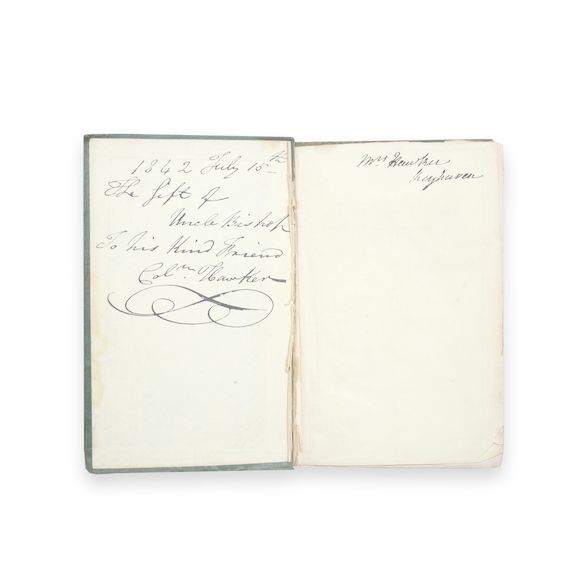 1842 July 15th
The Gift of
Uncle Bishop
To his Kind Friend
Coln. Hawker
Mrs Hawker
Keyhaven